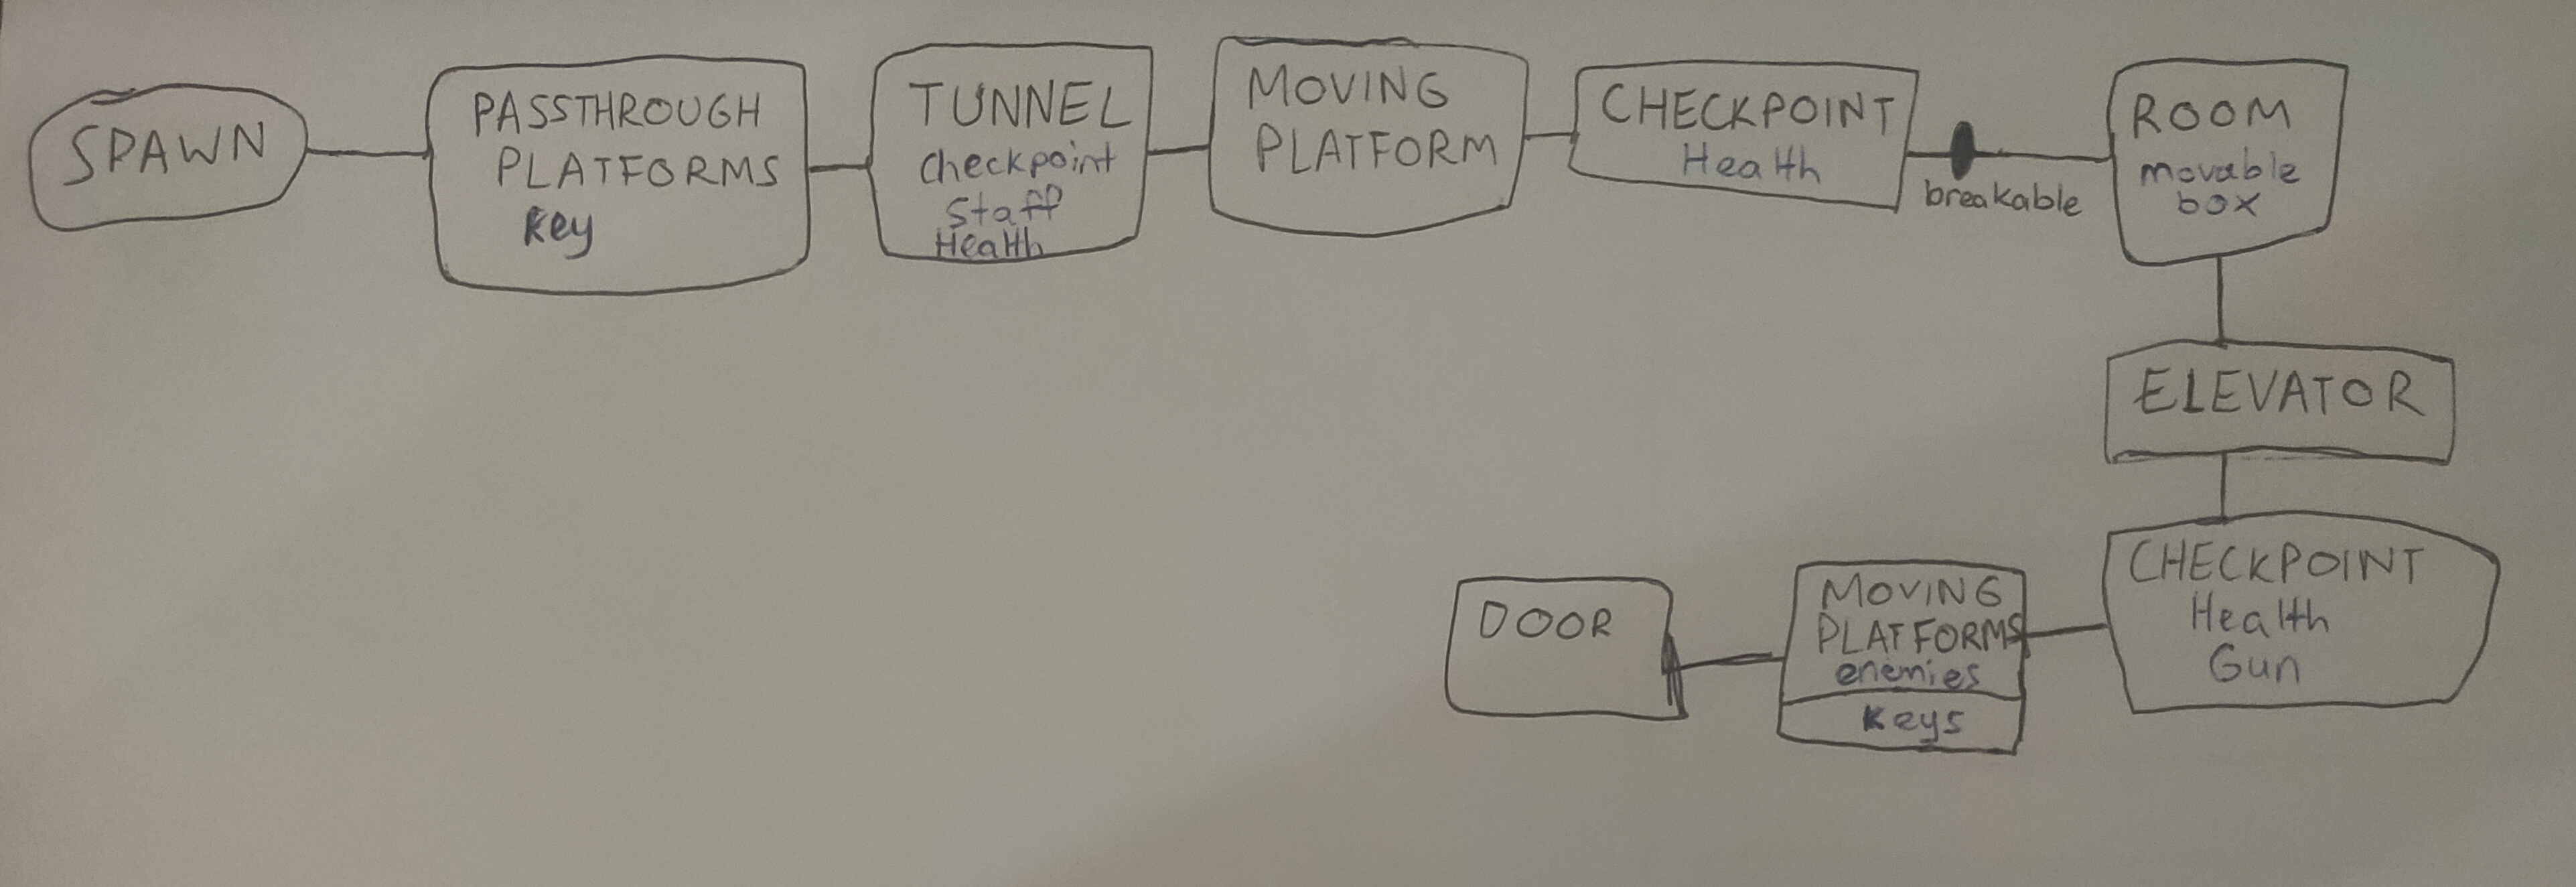 SPAWN
PASSTHROUGH
PLATFORMS
Key
TUNNEL
Checkpoint
Staff
Health
MOVING
PLATFORM
CHECKPOINT
Health
breakable
ROOM
movable
box
ELEVATOR
CHECKPOINT
Health
Gun
MOVING
PLATFORMS
enemies
Keys
DOOR